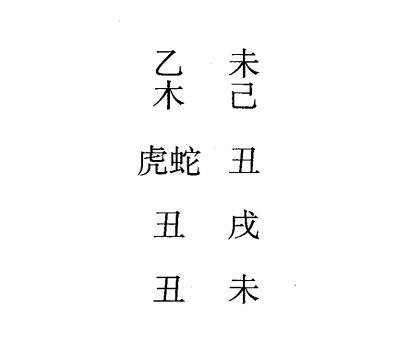 乙 未
木 己
虎蛇 丑
丑 戌
丑 未